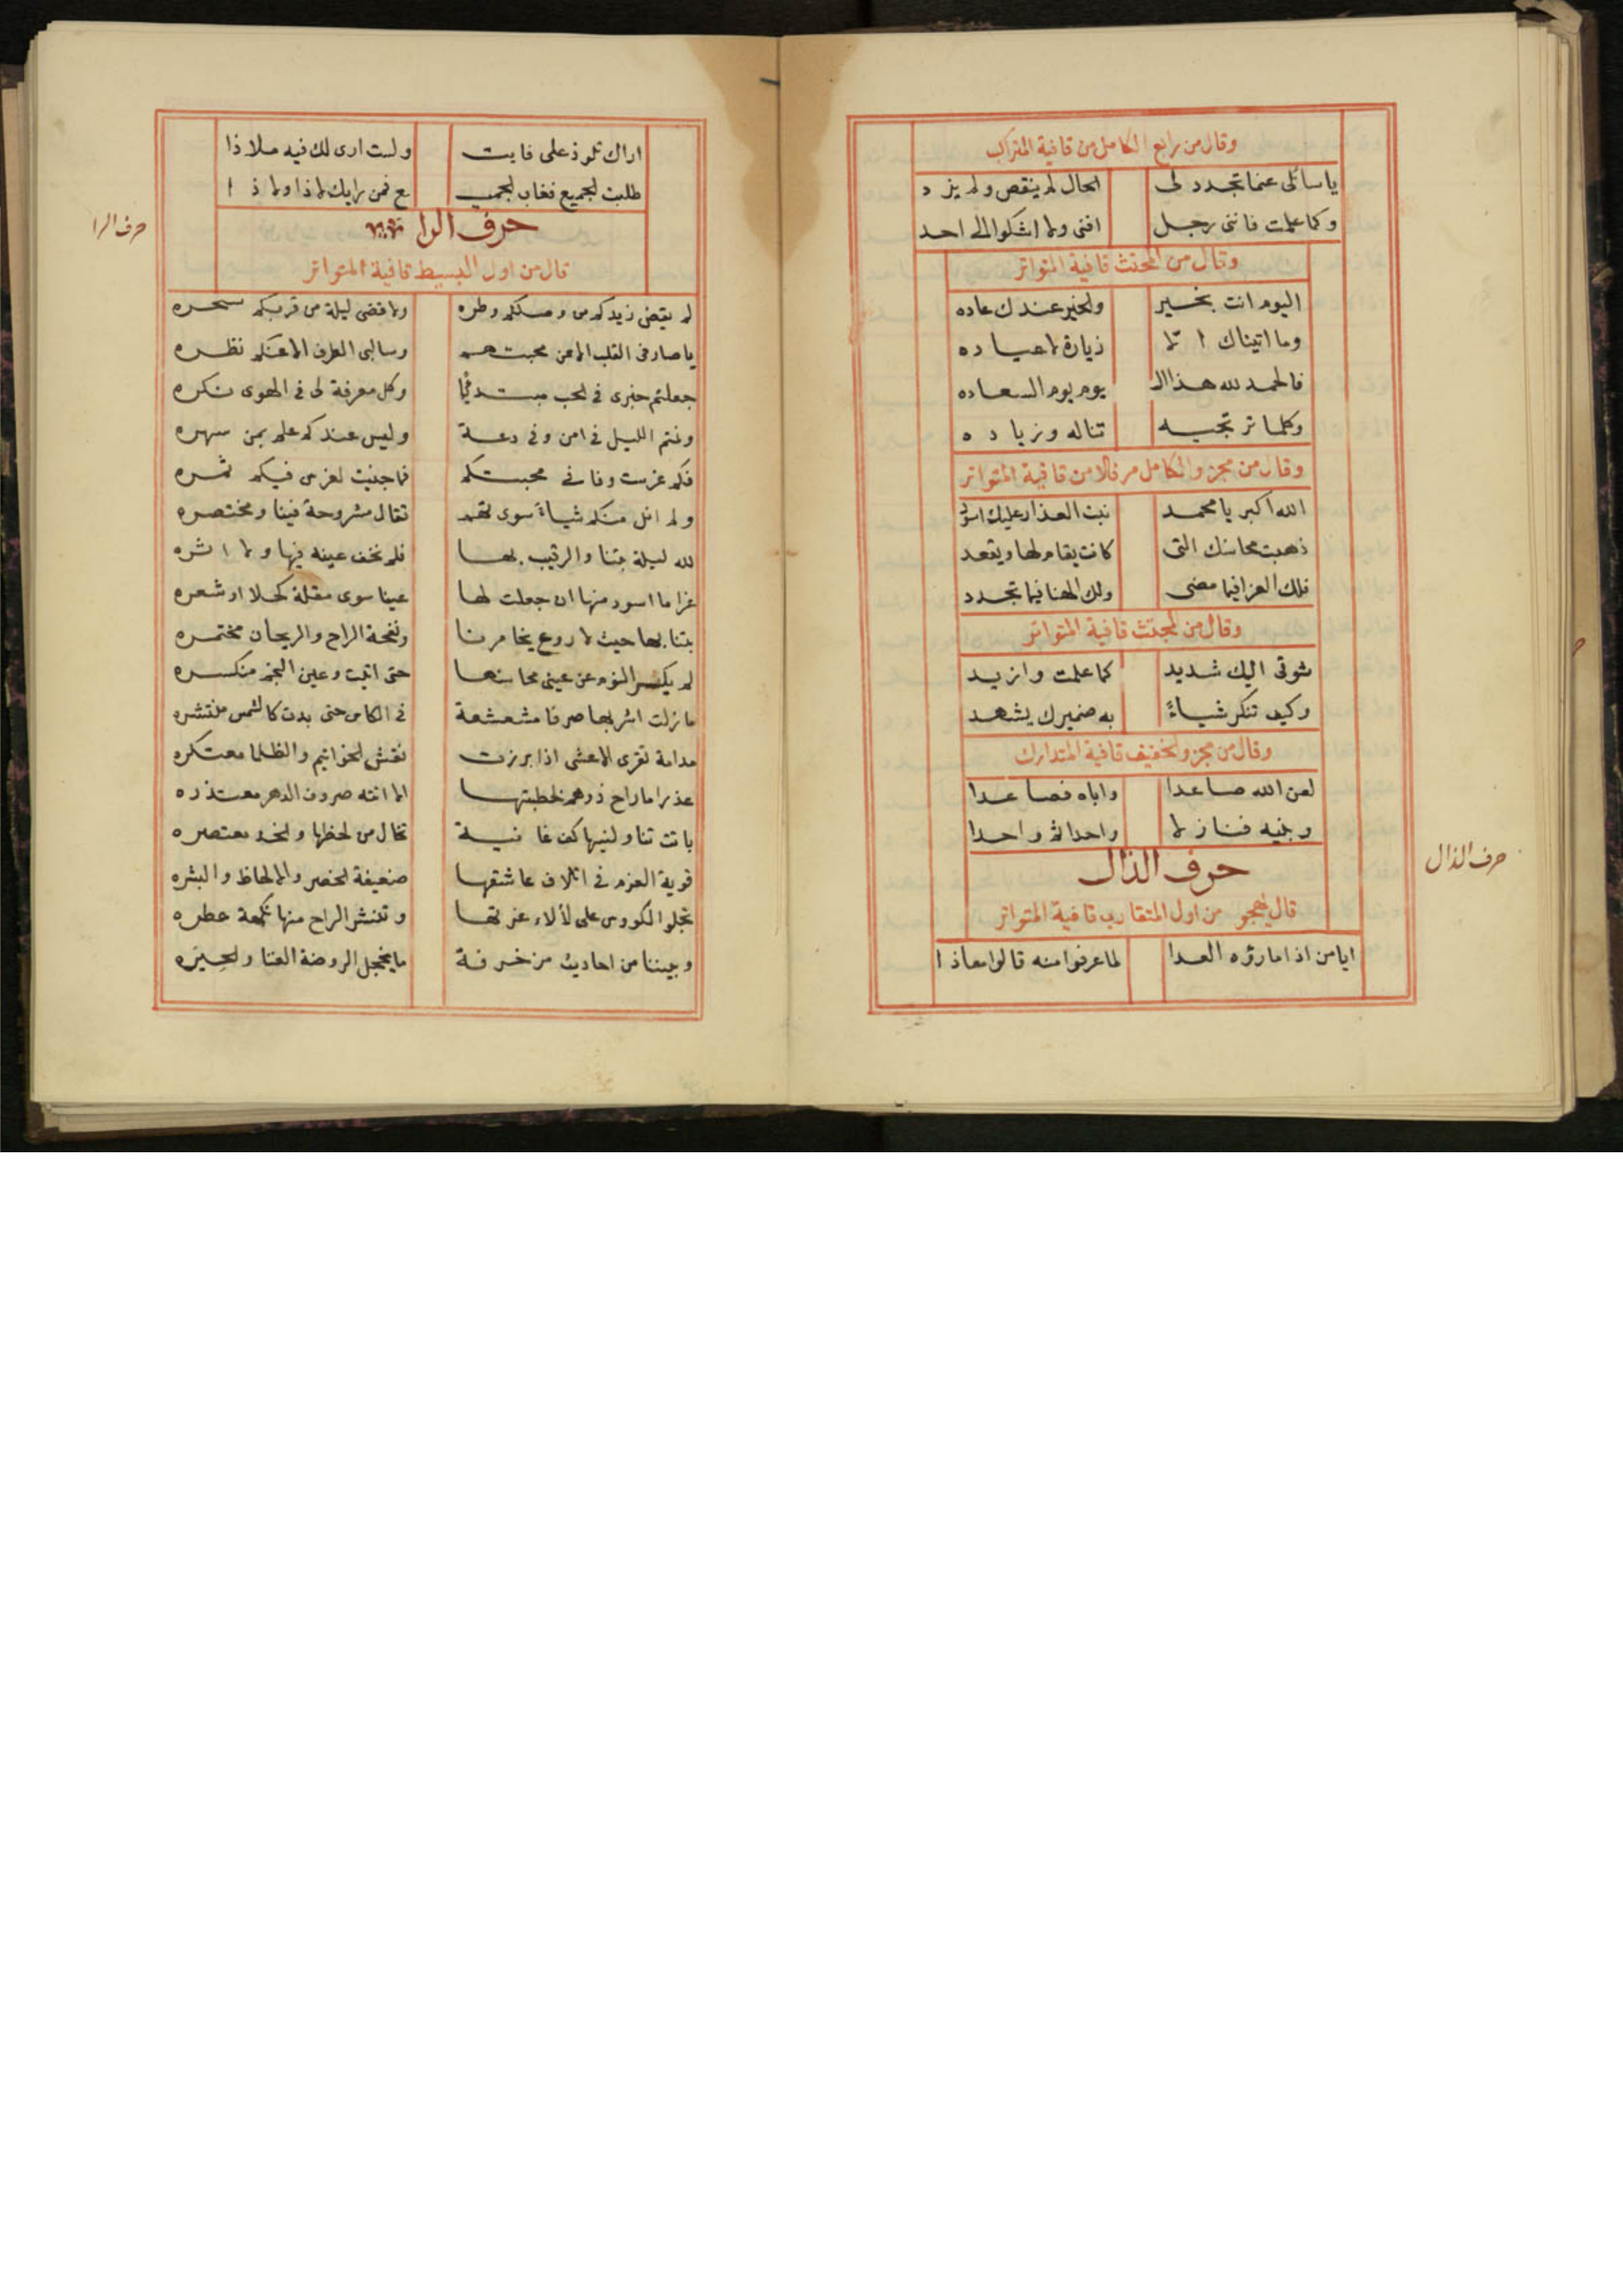 وقال من رابع الكامل من قافية المتراكب
يا سائلى عما تجدد لى الحال لم ينقص ولم يزد
وكما علمت فاننى رجل افنى ولا اشكوا الى احد
وقال من المجتث قافية المتواتر
اليوم انت بخير والخير عندك عاده
وما اتيناك الا زيارة لا عياده
فالحمد لله هذا ال يوم يوم السعاده
وكلما ترتجيه تناله وزياده
وقال من مجزو الكامل مرفلا من قافية المتواتر
الله اكبر يا محمد نبت العذار عليك اسود
ذهبت محاسنك التى كانت يقام لها ويقعد
فلك العزا فيما مضى ولك الهنا فيما تجدد
وقال من المجتث قافية المتواتر
شوقى اليك شديد كما علمت وازيد
وكيف تنكر شياءً به ضميرك يشهد
وقال من مجزو الخفيف قافية المتدارك
لعن الله صاعدا واباه فصاعدا
وبنيه فنازلا واحدا ثم واحدا
حرف الذال
حرف الذال
قال يهجو من اول المتقارب قافية المتواتر
ايا من اذا ما رؤه العدا لما عرفوا منه قالوا معاذا
اراك تلوذ على فايت ولست ارى لك فيه ملاذا
طلبت الجميع فغاب الجميـ ع فمن رايك لا ذا ولا ذا
حرف الرا
حرف الرا
قال من اول البسيط قافية المتواتر
لم يقض زيدكم من وصلكم وطره ولا قضى ليلة من قربكم سحره
يا صارفى القلب الا عن محبتهم وسالبى الطرف الا عنكم نظره
جعلتم خبرى فى الحب مبتدئًا وكل معرفة لى فى الهوى نكره
ونمتم الليل فى امن وفى دعة وليس عندكم علم بمن سهره
فكم غرست وفائى محبتكم فما جنيت لغرس فيكم ثمره
ولم انل منكم شياءً سوى تهم تقال مشروحة فينا ومختصره
لله ليلة بتنا والرقيب بها فلم نخف عينه فيها ولا اثره
غرا ما اسود منها ان جعلت لها عينا سوى مقلة كحلا او شعره
بتنا بها حيث لا روع يخامرنا ونفحة الراح والريحان مختمره
لم يكسر النوم عن عينى محاسنها حتى اتيت وعين النجم منكسره
ما زلت اشربها صرفا مشعشعة فى الكاس حتى بدت كالشمس منتشره
مدامة تقرى الاعشى اذا برزت نقش الخواتيم والظلما معتكره
عذرا ما راح ذو هم لخطبتها الا اتته صروف الدهر معتذره
باتت تناولنيها كف غانية تخال من لحظها والخد معتصره
قوية العزم فى اتلاف عاشقها ضعيفة الخصر والالحاظ والبشره
تجلو الكووس على لألاء غرتها وتنشر الراح منها نكهة عطره
وبيننا من احاديث مزخرفة ما يخجل الروضة الغنا والحبره